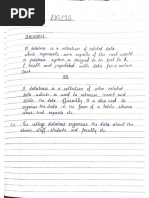 DBMS
DATABASE
A database is a collection of related data
which represents some aspects of the real world
A database system is designed to be
built and populated with data for a certain
task.
OR
A database is a collection of inter related
data which is used to retrieve, insert and
delete the data efficiently. It is also used to
organize the data in the form of a table, schema
views, and reports etc.
The college database organizes the data about the
admin, staff, students and faculty etc.